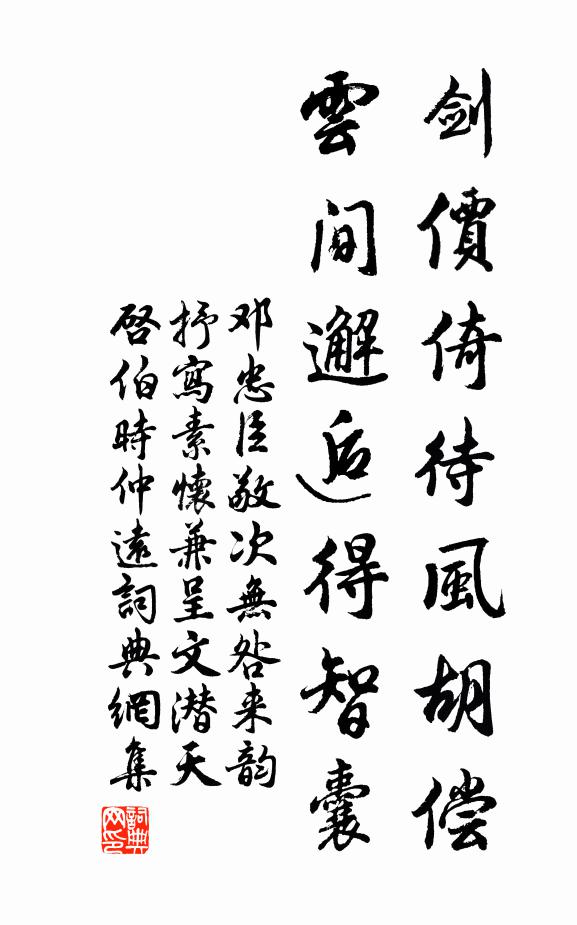 劍價倚待風胡偿
雲间邂逅得智囊
邓忠臣敬次無咎来韵
抒寫素懷兼呈文潜天
啓伯時仲遠詞典網集
詞典网印